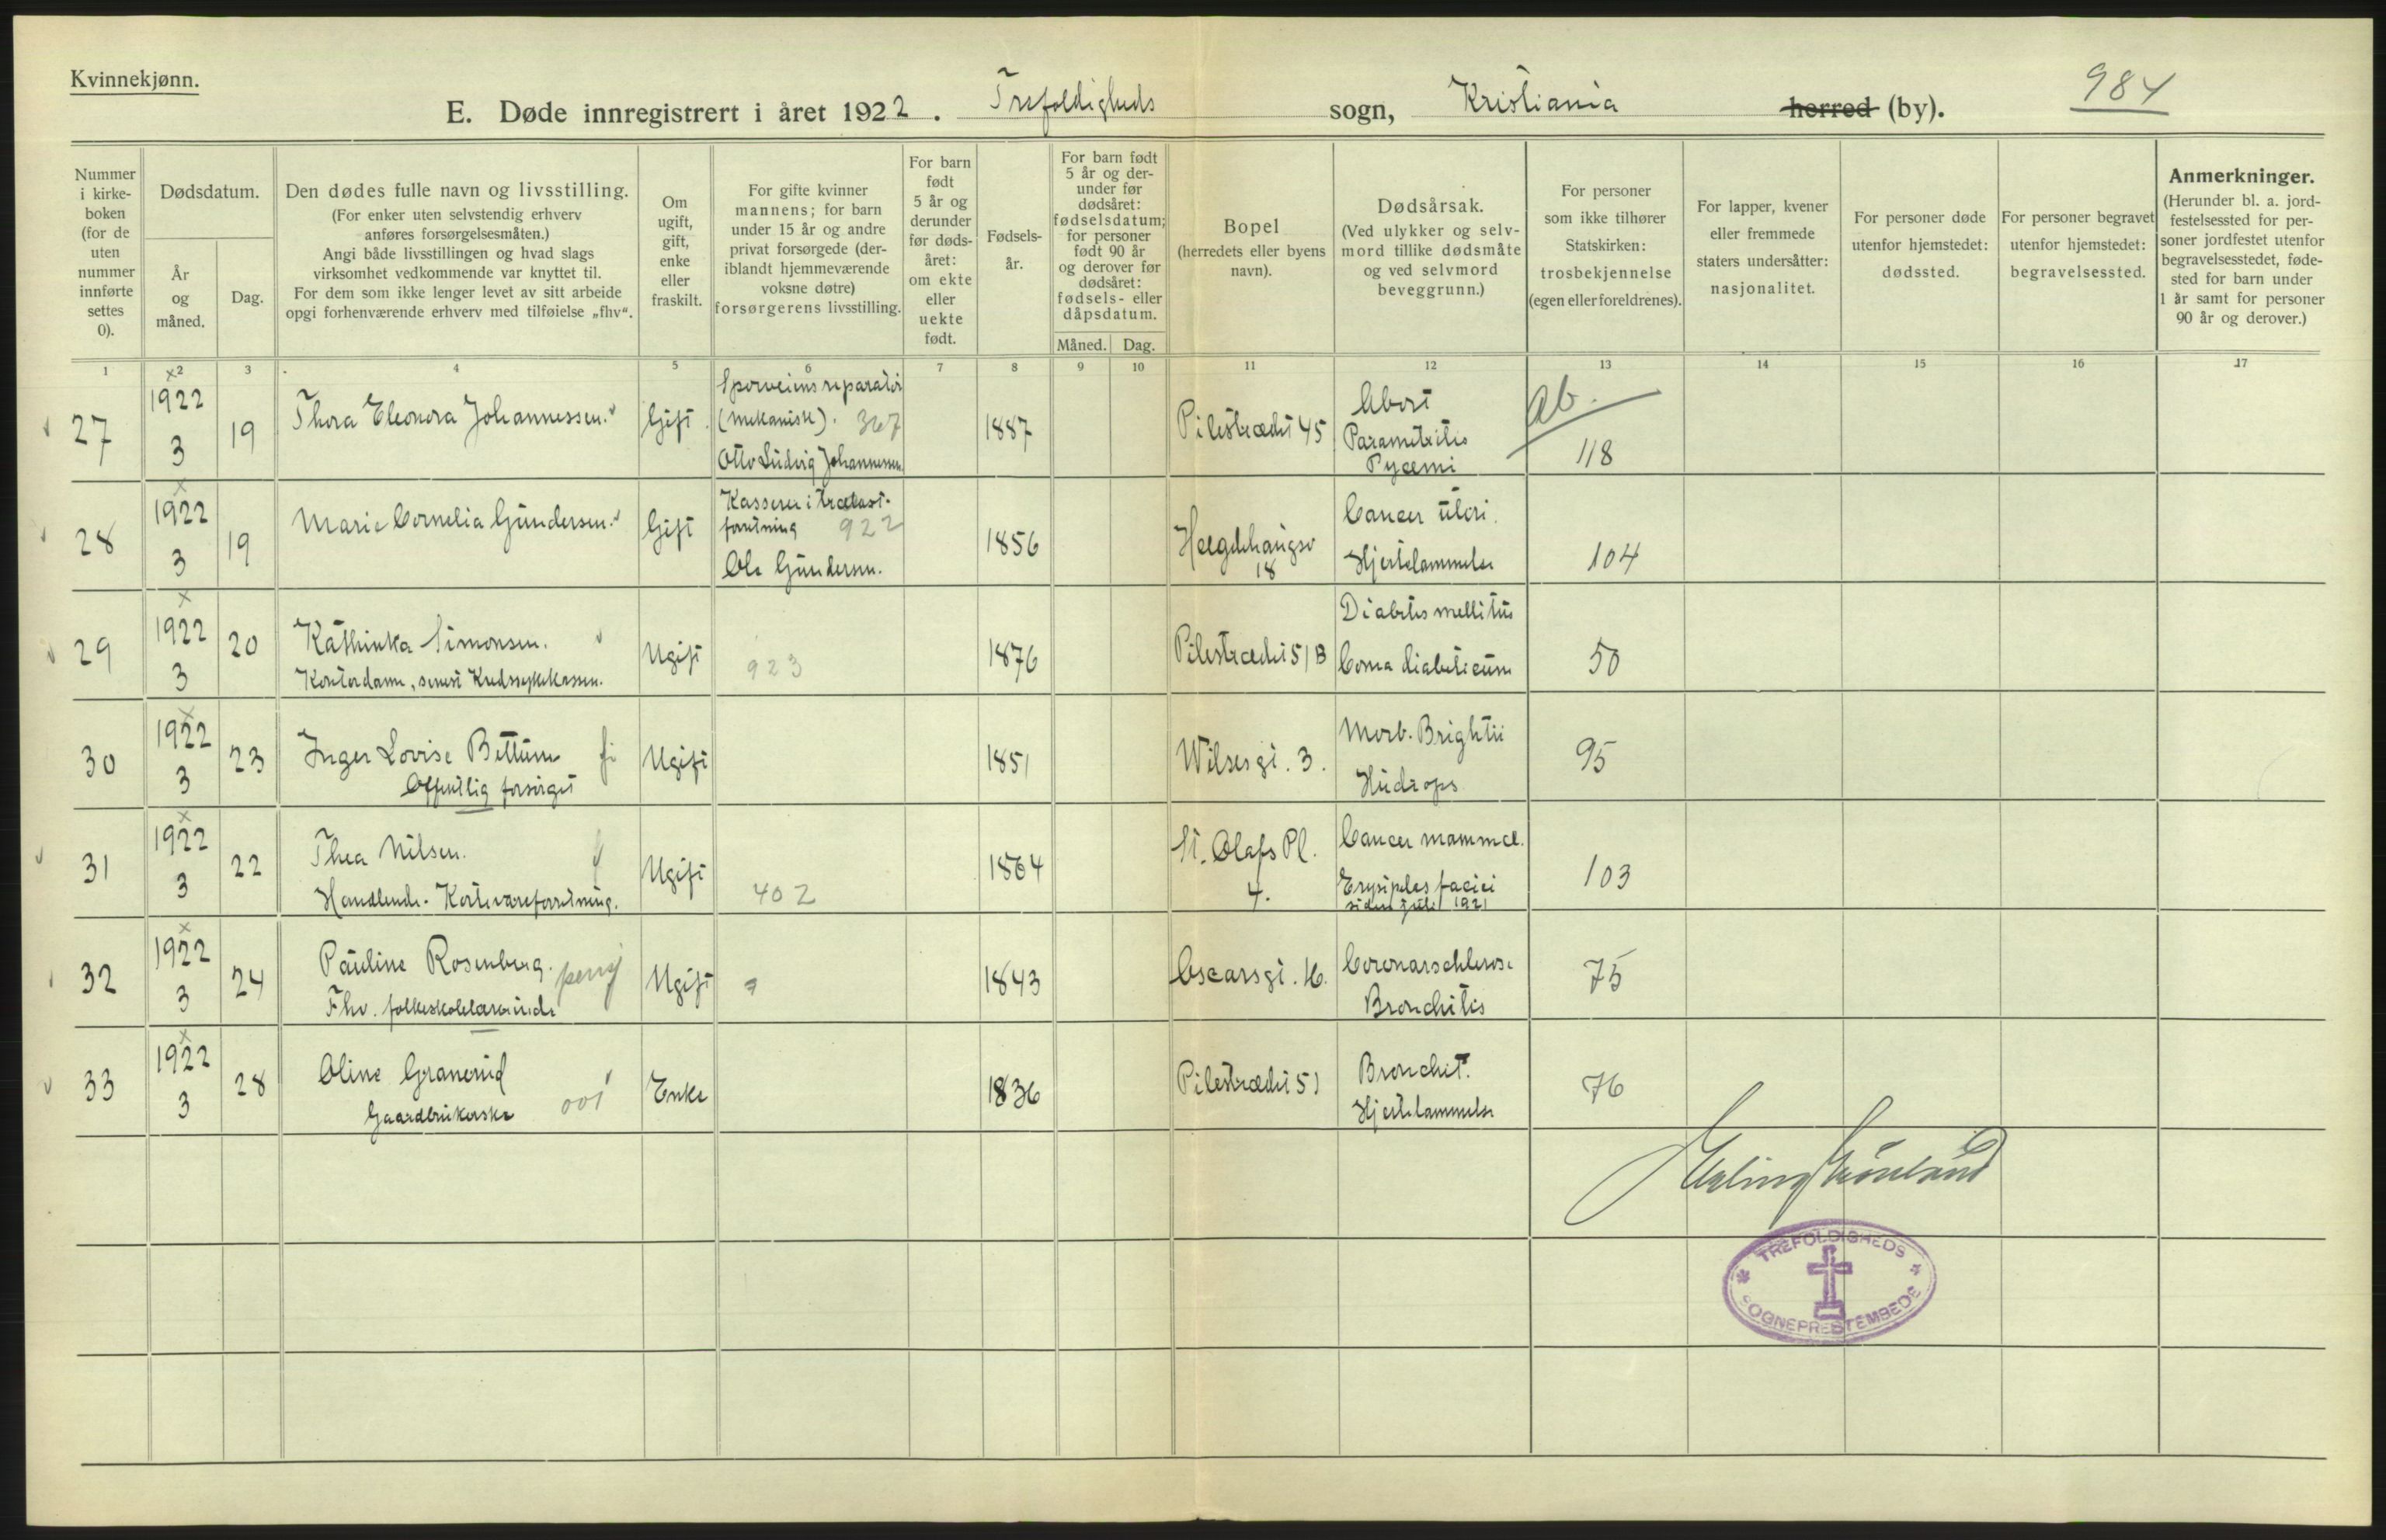 Kvinnekjønn.
984
E. Døde innregistrert i året 1922. Trefoldigheds sogn, Kristiania herred (by).
Nummer i kirke-boken (for de uten nummer innførte settes 0).
Dødsdatum.
År og måned.
Dag.
Den dødes fulle navn og livsstilling.
(For enker uten selvstendig erhverv
anføres forsørgelsesmåten.)
Angi både livsstillingen og hvad slags
virksomhet vedkommende var knyttet til.
For dem som ikke lenger levet av sitt arbeide
opgi forhenværende erhverv med tilføielse „fhv“.
Om ugift, gift, enke eller fraskilt.
For gifte kvinner
mannens; for barn
under 15 år og andre
privat forsørgede (der-
iblandt hjemmeværende
voksne døtre)
forsørgerens livsstilling.
For barn født 5 år og derunder før døds-året: om ekte eller uekte født.
Fødsels-år.
For barn født
5 år og der-
under før
dødsåret:
fødselsdatum;
for personer
født 90 år
og derover før
dødsåret:
fødsels- eller
dåpsdatum.
Måned. Dag.
Bopel
(herredets eller byens
navn).
Dødsårsak.
(Ved ulykker og selv-
mord tillike dødsmåte
og ved selvmord
beveggrunn.)
For personer
som ikke tilhører
Statskirken:
trosbekjennelse
(egen eller foreldrenes).
For lapper, kvener
eller fremmede
staters undersåtter:
nasjonalitet.
For personer døde
utenfor hjemstedet:
dødssted.
For personer begravet
utenfor hjemstedet:
begravelsessted.
Anmerkninger.
(Herunder bl. a. jord-
festelsessted for per-
soner jordfestet utenfor
begravelsesstedet, føde-
sted for barn under
1 år samt for personer
90 år og derover.)
1 2 3 4 5 6 7 8 9 10 11 12 13 14 15 16 17
27
1922
3
19
Thora Eleonora Johannessen.
Gift.
Sporveiensreparatør
(mekanisk). 367
Otto Ludvig Johannessen
1887
Pilestrædet 45
Abort
Parametritis
Pyæmi
Ab.
118
28
1922
3
19
Marie Cornelia Gundersen.
Gift
Kasserer i trælast-
forretning 922
Ole Gundersen.
1856
Hægdehaugsv
18
Cancer uteri.
Hjertelammelse
104
29
1922
3
20
Kathinka Simonsen.
Kontordame, senest Kredssykekassen.
Ugift
923
1876
Pilestrædet 51 B
Diabetes mellitus
Coma diabeticum
50
30
1922
3
23
Inger Lovise Bettum
Offentlig forsørget
fi
Ugift
1851
Wilsesgt. 3.
Morb. Brightii
Hydrops
95
31
1922
3
22
Thea Nilsen.
Handlende. Kortevareforretning.
Ugift
402
1864
St. Olafs Pl.
4.
Cancer mammæ.
Erysipelas faciei
siden juli 1921
103
32
1922
3
24
Pauline Rosenberg.
Fhv. folkeskolelærerinde
Ugift
1843
Oscarsgt. 16.
Coronarschlerose
Bronchitis
75
33
1922
3
28
Oline Granerud
Gaardbrukerske 001
Enke
1836
Pilestrædet 51
Bronchit.
Hjertelammelse
76
Erling Grønland
TREFOLDIGHEDS
SOGNEPRESTEMBEDE